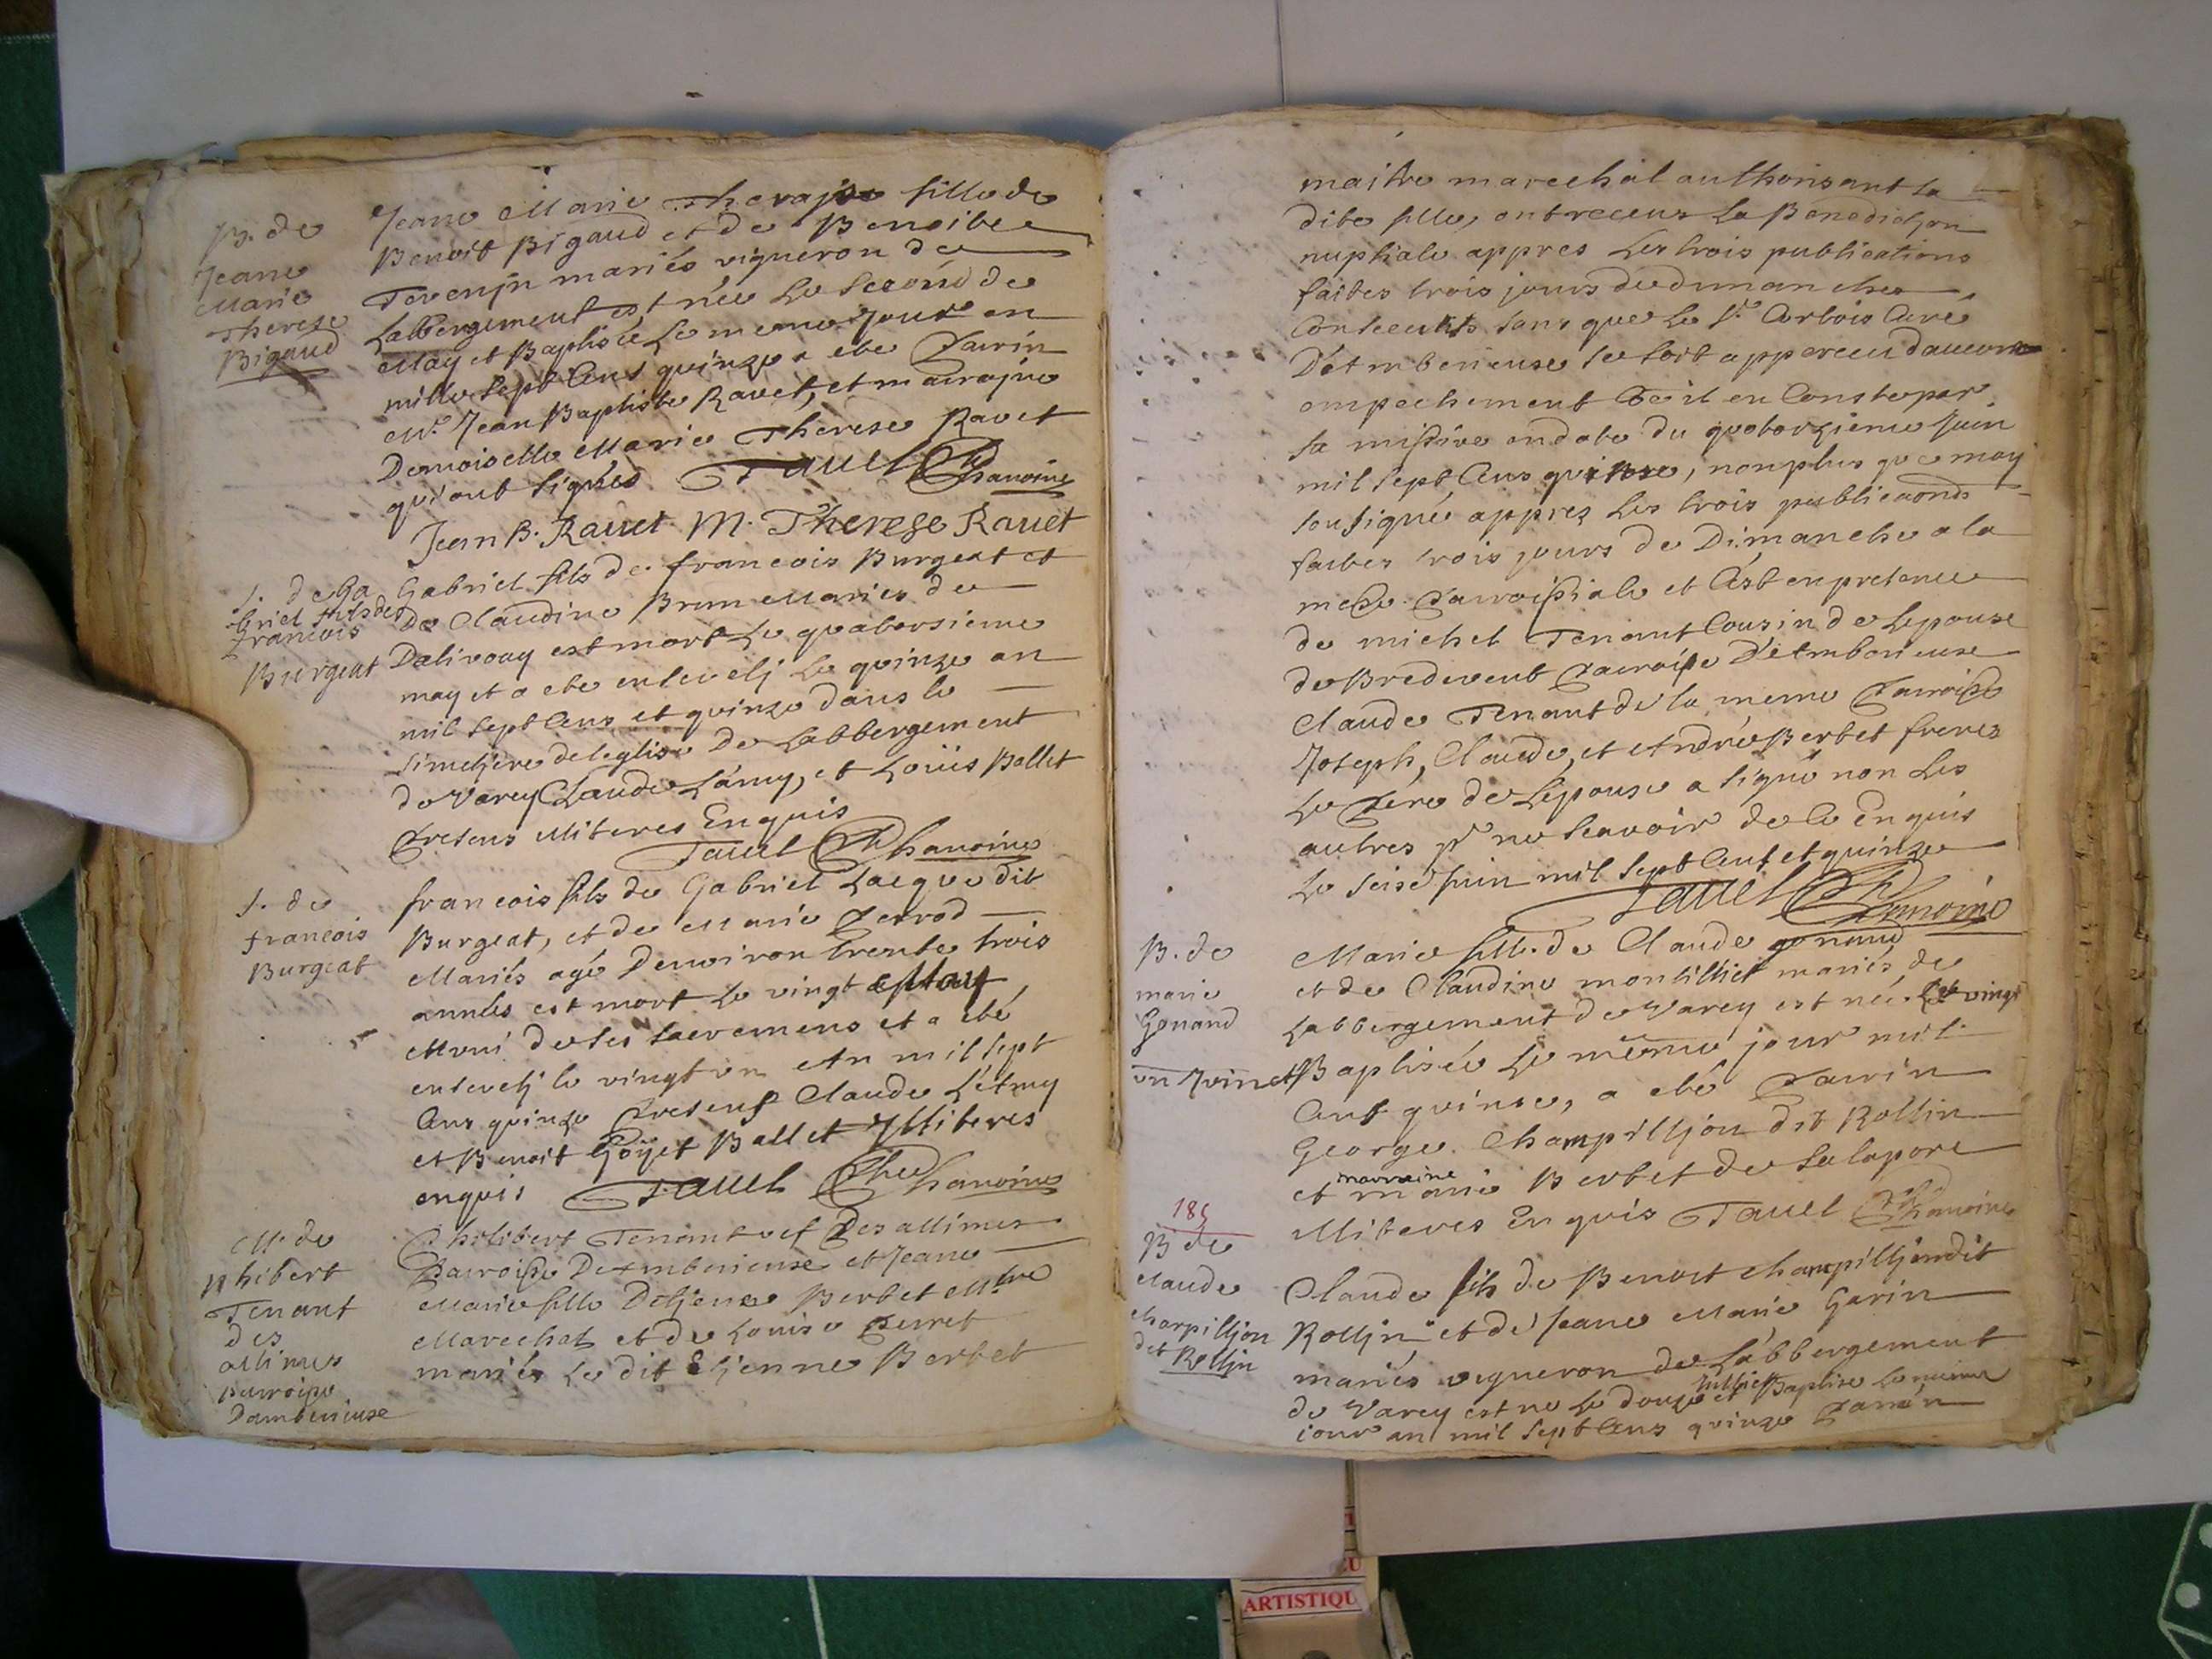 B. de
Jeane
Marie
Therese
Bigaud
Jeane Marie Therajse fille de
Benoit Bigaud et de Benoite
Tevenjn mariés vigneron de
Labbergement est née Le Second de
May et Baptisée Le meme Jour an
mille Sept Cens quinze a ete Parin
Mr. Jean Baptiste Ravet, et maraine
Demoiselle Marie Therese Ravet
qui ont signés. Tavel Ch Chanoine
Jean B. Rauet M. Therese Rauet
S. de Ga
briel fils de
francois
Burgeat
Gabriel fils de francois Burgeat et
De Claudine Brun Mariés de
Dalivouy est mort Le quatorsieme
may et a ete ensevelj Le quinze an
mil sept Cens et quinze dans le
simetjere de leglise De Labbergement
de Varey Claude Lámy, et Loüis Ballet
Presens Miteres Enquis
Tavel Ch Chanoine
S. de
francois
Burgeat
francois fils de Gabriel Lacque dit
Burgeat, et de Marie Perrod
Mariés agé Denviron trente trois
années est mort Le vingt May
Muni de ses sacremens et a eté
ensevelj le vingt un An mil sept
Cens quinze Presens Claude L'Amy
et Benoit Goÿet Ballet Jlliteres
enquis Tavel Ch Chanoine
M. de
phibert
Tenant
des
allimes
parroise
Dambenieuse
Philibert Tenant des allimes
Parroise De Ambenieuse et Jeane
Marie fille Detjene Berbet Mtre
Marechal et de Louise Perret
mariés Le dit Etjenne Berbet
maitre marechal authorisant la
dite fille, ont receus La Benedictjon
nuptiale appres Les trois publications
faites trois jours de dimanches
Consecutifs sans que Le Sr. Curé
D'Ambenieuse se soit apperceu daucun
empechement Cõe il en Conste par
sa missive en date du quatorzieme Juin
mil sept Cens quinse, non plus que moy
sousigné apprez Les trois publicaons
faites trois jours de Dimanche a la
messe Parroissiale et C'est en presence
de michel Tenant Cousin de Lepouse
de Bredevent Parroise D'Ambenieuse
Claude Tenant de la meme Parroisse
Joseph, Claude, et André Berbet freres
Le Pére de Lépouse a signé non Les
autres pr ne scavoir de ce Enquis
Le seise Juin mil sept Cent et quinze
Tavel Ch Chanoine
B. de
marie
Gonand
Marie fille de Claude gonand
et de Claudine montilliet mariés de
Labbergement de Varey est née Le vingt
un Juin et Baptisée Le même jour mil
Cens quinse, a eté Parin
George Champilljon dit Rollin
et marraine marie Berbet de Salapore
Miteres Enquis Tavel Ch Chanoine
185
B de
Claude
Charpilljon
dit Rolljn
Claude fils de Benoit champilljon dit
Rolljn et de Jeane Marie Garin
mariés vigneron de L'abbergement
de Varey est ne Le douze Julliet et Baptise Le meme
jour an mil sept Cens quinze Parin
ARTISTIQU